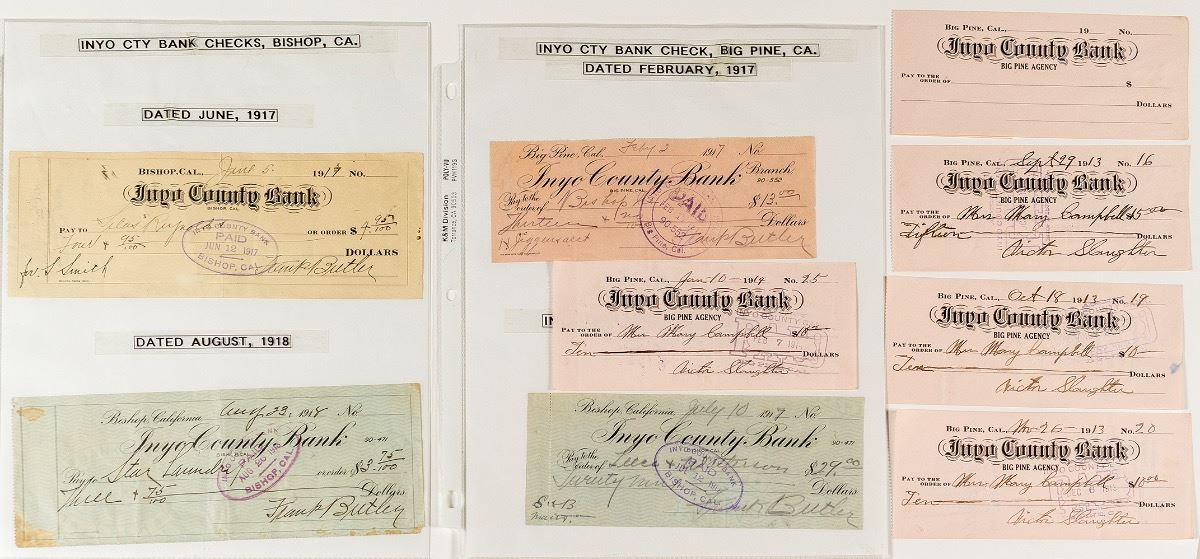 INYO CTY BANK CHECKS, BISHOP, CA.
DATED JUNE, 1917
BISHOP, CAL., June 5. 1917 No.
Inyo County Bank
BISHOP, CAL.
PAY TO OR ORDER $4 95/100
Four & 95/100 DOLLARS
INYO COUNTY BANK
PAID
JUN 12 1917
BISHOP, CAL.
for S Smith Frank Butler
DATED AUGUST, 1918
Bishop, California, Aug 23, 1918 No.
Inyo County Bank 90-471
Pay to Star Laundry or order $3 75/100
Three & 75/100 Dollars
PAID
BISHOP, CAL.
Frank Butler
K&M Division POLY-VU
Torrance, CA 90503
INYO CTY BANK CHECK, BIG PINE, CA.
DATED FEBRUARY, 1917
Big Pine, Cal., Feby 2 1917 No.
Inyo County Bank Branch
BIG PINE, CAL. 90-552
Pay to the order of Bishop $13.00
Thirteen & Dollars
PAID
90-552
Big Pine, Cal.
Frank Butler
BIG PINE, CAL., Jan 10 1914 No. 25
Inyo County Bank
BIG PINE AGENCY
PAY TO THE ORDER OF Mrs Mary Campbell $10.00
Ten DOLLARS
Victor Slaughter
IN
Bishop, California, July 10 1917 No.
Inyo County Bank 90-471
Pay to the order of $29.00
Twenty Dollars
PAID
BISHOP, CAL.
Frank Butler
BIG PINE, CAL., 19 No.
Inyo County Bank
BIG PINE AGENCY
PAY TO THE ORDER OF $
DOLLARS
BIG PINE, CAL., Sept 29 1913 No. 16
Inyo County Bank
BIG PINE AGENCY
PAY TO THE ORDER OF Mrs Mary Campbell $15.00
Fifteen DOLLARS
Victor Slaughter
BIG PINE, CAL., Oct 18 1913 No. 19.
Inyo County Bank
BIG PINE AGENCY
PAY TO THE ORDER OF Mrs Mary Campbell $10
Ten DOLLARS
Victor Slaughter
BIG PINE, CAL., Nov 26 1913 No. 20
Inyo County Bank
BIG PINE AGENCY
PAY TO THE ORDER OF Mrs Mary Campbell $10.00
Ten DOLLARS
Victor Slaughter